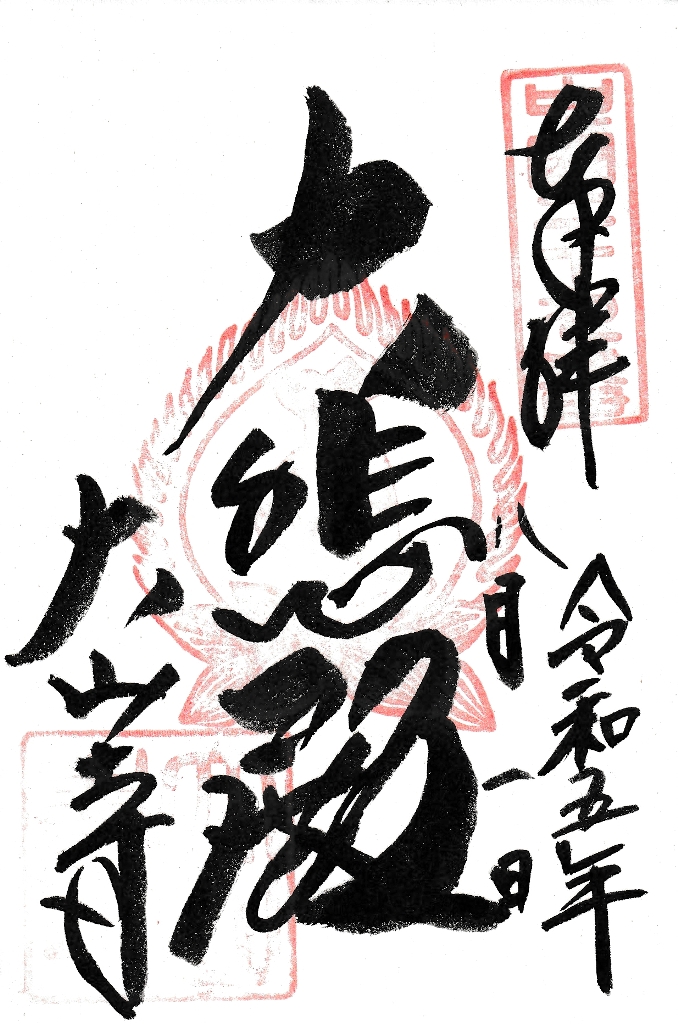 奉拝
令和五年
八月一日
大悲殿
大山寺